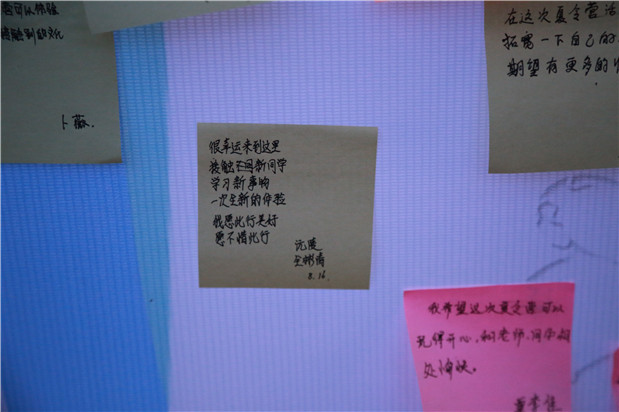 可以体验
接触到的文化
卜薇.
在这次夏令营活
拓宽一下自己的
期望有更多的
很幸运来到这里
接触不同新同学
学习新事物
一次全新的体验
我愿此行美好
愿不惜此行
沅陵
8.16.
我希望这次夏令营可以
玩得开心,和老师、同学相
处愉快。